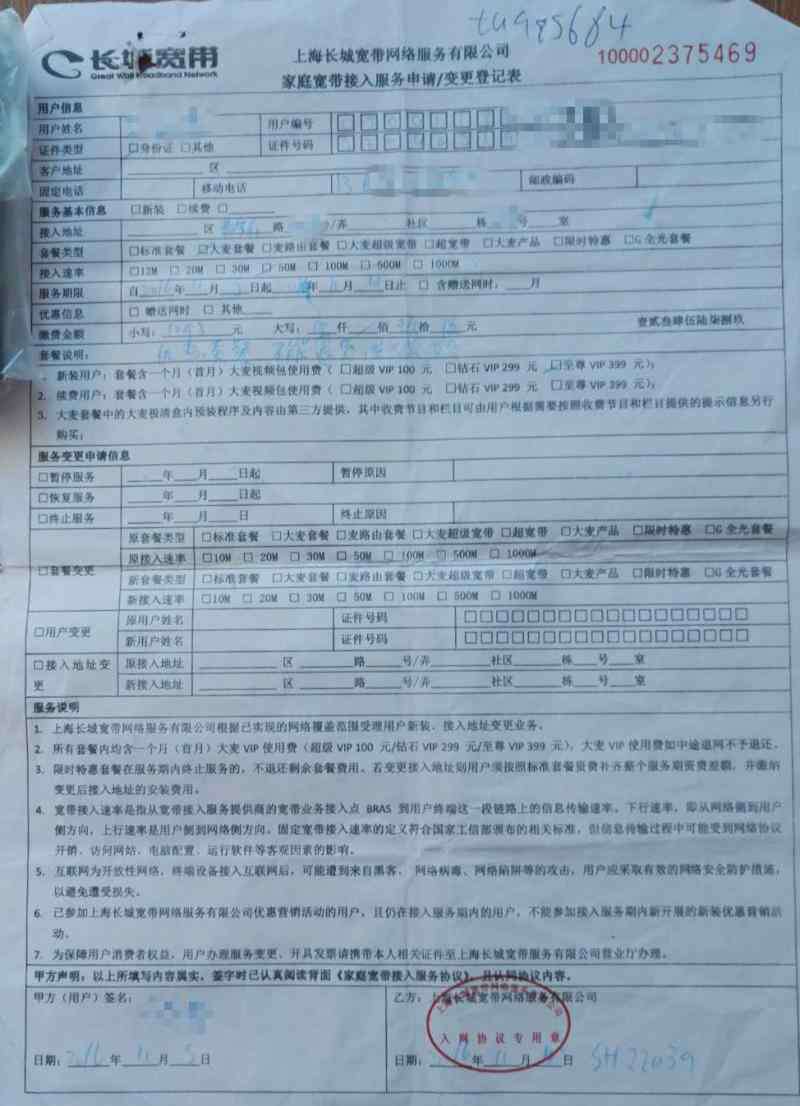 tug85684
长城宽带
Great Wall Broadband Network
上海长城宽带网络服务有限公司
100002375469
家庭宽带接入服务申请/变更登记表
用户信息
用户姓名 用户编号
证件类型 □身份证 □其他 证件号码
客户地址 区
固定电话 移动电话 邮政编码
服务基本信息 □新装 □续费 □
接入地址 区 路 号/弄 社区 栋 号 室
套餐类型 □标准套餐 □大麦套餐 □麦路由套餐 □大麦超级宽带 □超宽带 □大麦产品 □限时特惠 □G 全光套餐
接入速率 □12M □ 20M □ 30M □ 50M □ 100M □ 500M □ 1000M
服务期限 自2016年11月 日起 年 月 日止 □ 含赠送网时: 月
优惠信息 □ 赠送网时 □ 其他
缴费金额 小写: 元 大写: 仟 佰 拾 元 壹贰叁肆伍陆柒捌玖
套餐说明:
1. 新装用户:套餐含一个月(首月)大麦视频包使用费(□超级 VIP 100 元 □钻石 VIP 299 元 □至尊 VIP 399 元);
2. 续费用户:套餐含一个月(首月)大麦视频包使用费(□超级 VIP 100 元 □钻石 VIP 299 元 □至尊 VIP 399 元);
3. 大麦套餐中的大麦极清盒内预装程序及内容由第三方提供,其中收费节目和栏目可由用户根据需要按照收费节目和栏目提供的提示信息另行
购买;
服务变更申请信息
□暂停服务 年 月 日起 暂停原因
□恢复服务 年 月 日起
□终止服务 年 月 日 终止原因
□套餐变更
原套餐类型 □标准套餐 □大麦套餐 □麦路由套餐 □大麦超级宽带 □超宽带 □大麦产品 □限时特惠 □G 全光套餐
原接入速率 □10M □ 20M □ 30M □ 50M □ 100M □ 500M □ 1000M
新套餐类型 □标准套餐 □大麦套餐 □麦路由套餐 □大麦超级宽带 □超宽带 □大麦产品 □限时特惠 □G 全光套餐
新接入速率 □10M □ 20M □ 30M □ 50M □ 100M □ 500M □ 1000M
□用户变更
原用户姓名 证件号码
新用户姓名 证件号码
□接入地址变
更
原接入地址 区 路 号/弄 社区 栋 号 室
新接入地址 区 路 号/弄 社区 栋 号 室
服务说明
1. 上海长城宽带网络服务有限公司根据已实现的网络覆盖范围受理用户新装、接入地址变更业务。
2. 所有套餐内均含一个月(首月)大麦 VIP 使用费(超级 VIP 100 元/钻石 VIP 299 元/至尊 VIP 399 元),大麦 VIP 使用费如中途退网不予退还。
3. 限时特惠套餐在服务期内终止服务的,不退还剩余套餐费用。若变更接入地址则用户须按照标准套餐资费补齐整个服务期资费差额,并缴纳
变更后接入地址的安装费用。
4. 宽带接入速率是指从宽带接入服务提供商的宽带业务接入点 BRAS 到用户终端这一段链路上的信息传输速率。下行速率,即从网络侧到用户
侧方向,上行速率是用户侧到网络侧方向。固定宽带接入速率的定义符合国家工信部颁布的相关标准,但信息传输过程中可能受到网络协议
开销、访问网站、电脑配置、运行软件等客观因素的影响。
5. 互联网为开放性网络,终端设备接入互联网后,可能遭到来自黑客、网络病毒、网络陷阱等的攻击,用户应采取有效的网络安全防护措施,
以避免遭受损失。
6. 已参加上海长城宽带网络服务有限公司优惠营销活动的用户,且仍在接入服务期内的用户,不能参加接入服务期内新开展的新装优惠营销活
动。
7. 为保障用户消费者权益,用户办理服务变更、开具发票请携带本人相关证件至上海长城宽带服务有限公司营业厅办理。
甲方声明:以上所填写内容属实,签字时已认真阅读背面《家庭宽带接入服务协议》,且认同协议内容。
甲方(用户)签名: 乙方:上海长城宽带网络服务有限公司
入网协议专用章
日期: 2016年 11 月 5 日 日期: 2016年 11 月 日 SH22039